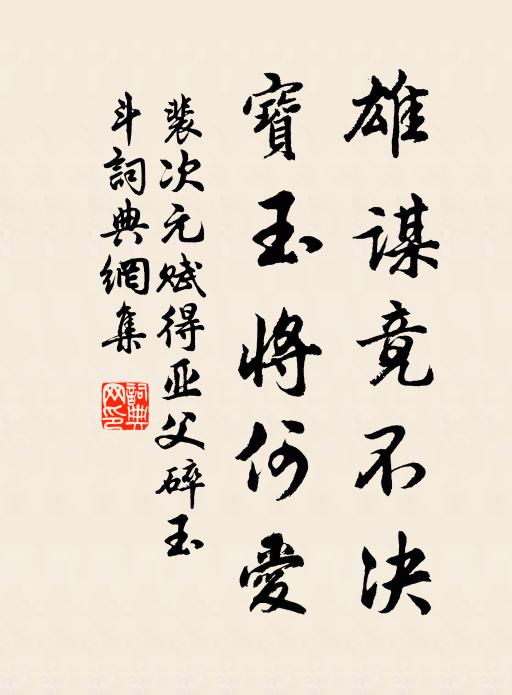 雄谋竟不决
寶玉将何愛
裴次元赋得亚父碎玉
斗詞典網集
詞典网印